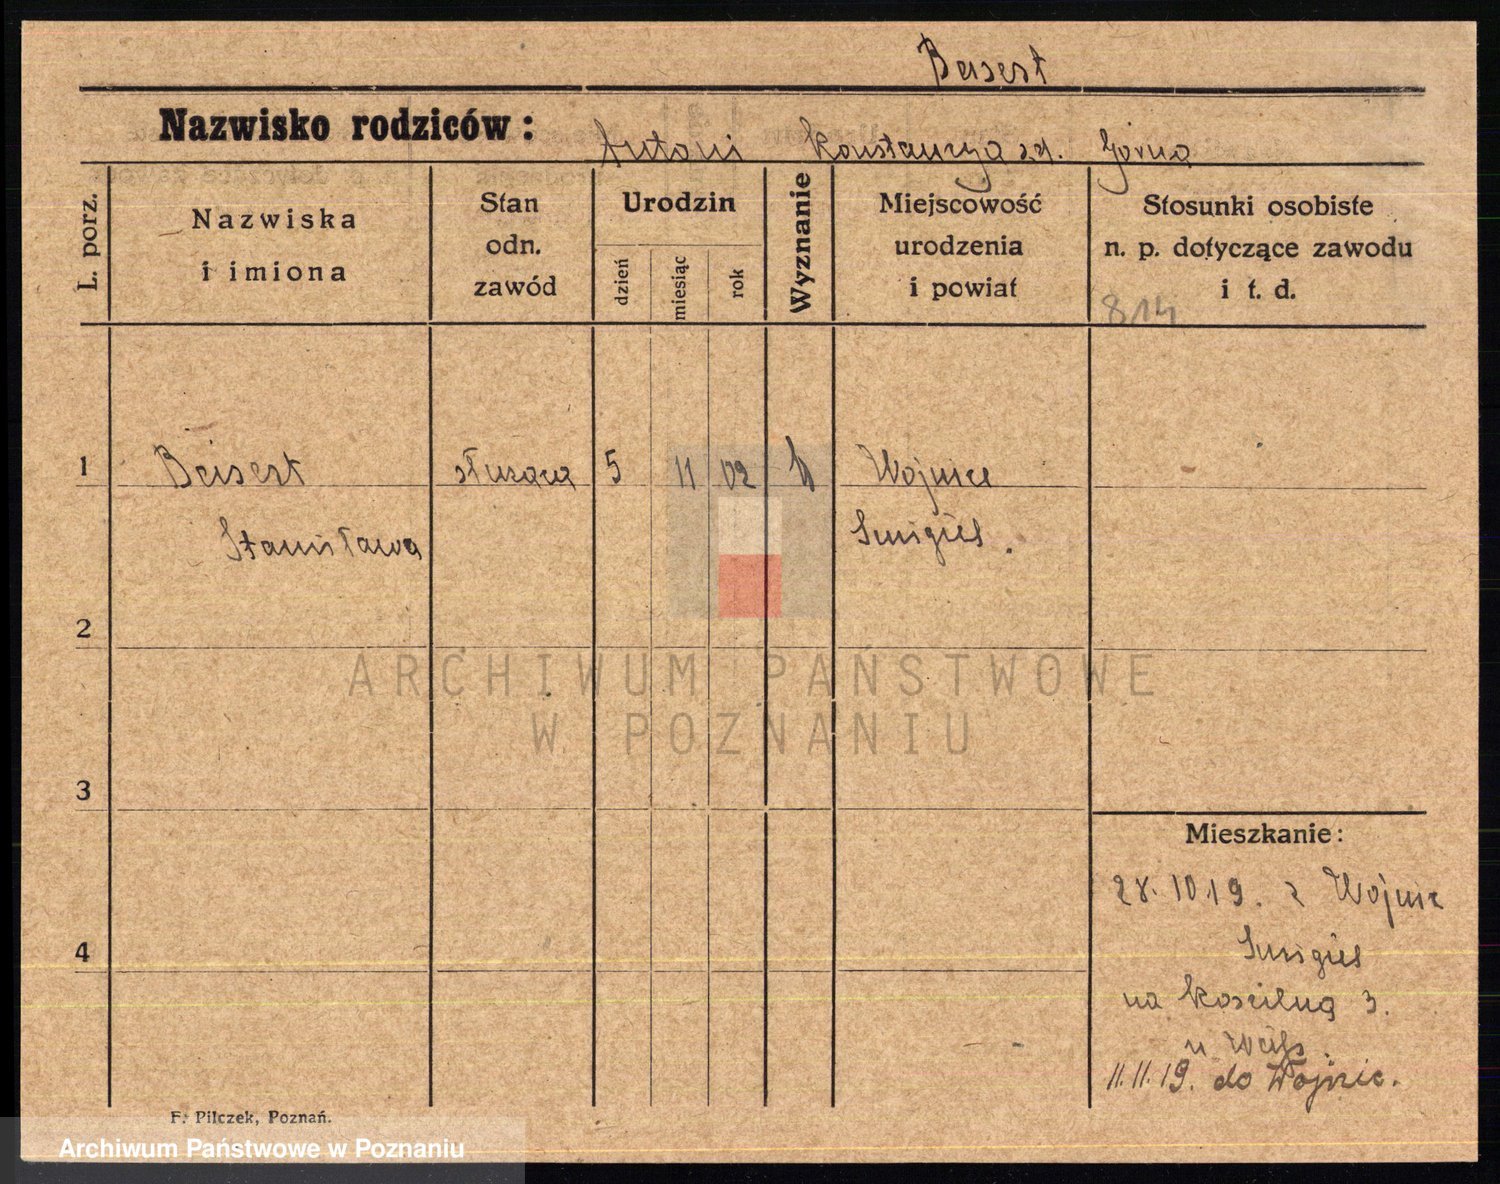 Beisert
Nazwisko rodziców: Antoni Konstancya z d. Górna
L. porz.
Nazwiska
i imiona
Stan
odn.
zawód
Urodzin
dzień
miesiąc
rok
Wyznanie
Miejscowość
urodzenia
i powiat
Stosunki osobiste
n. p. dotyczące zawodu
i t. d.
814
1 Beisert służąca 5 11 02 k Wojnice
Stanisława Smigiel.
2
ARCHIWUM PAŃSTWOWE
W POZNANIU
3
Mieszkanie:
28.10.19. z Wojnic
4
Smigiel
na Kościelną 3.
u Weiss.
11.11.19. do Wojnic.
F. Pilczek, Poznań.
Archiwum Państwowe w Poznaniu